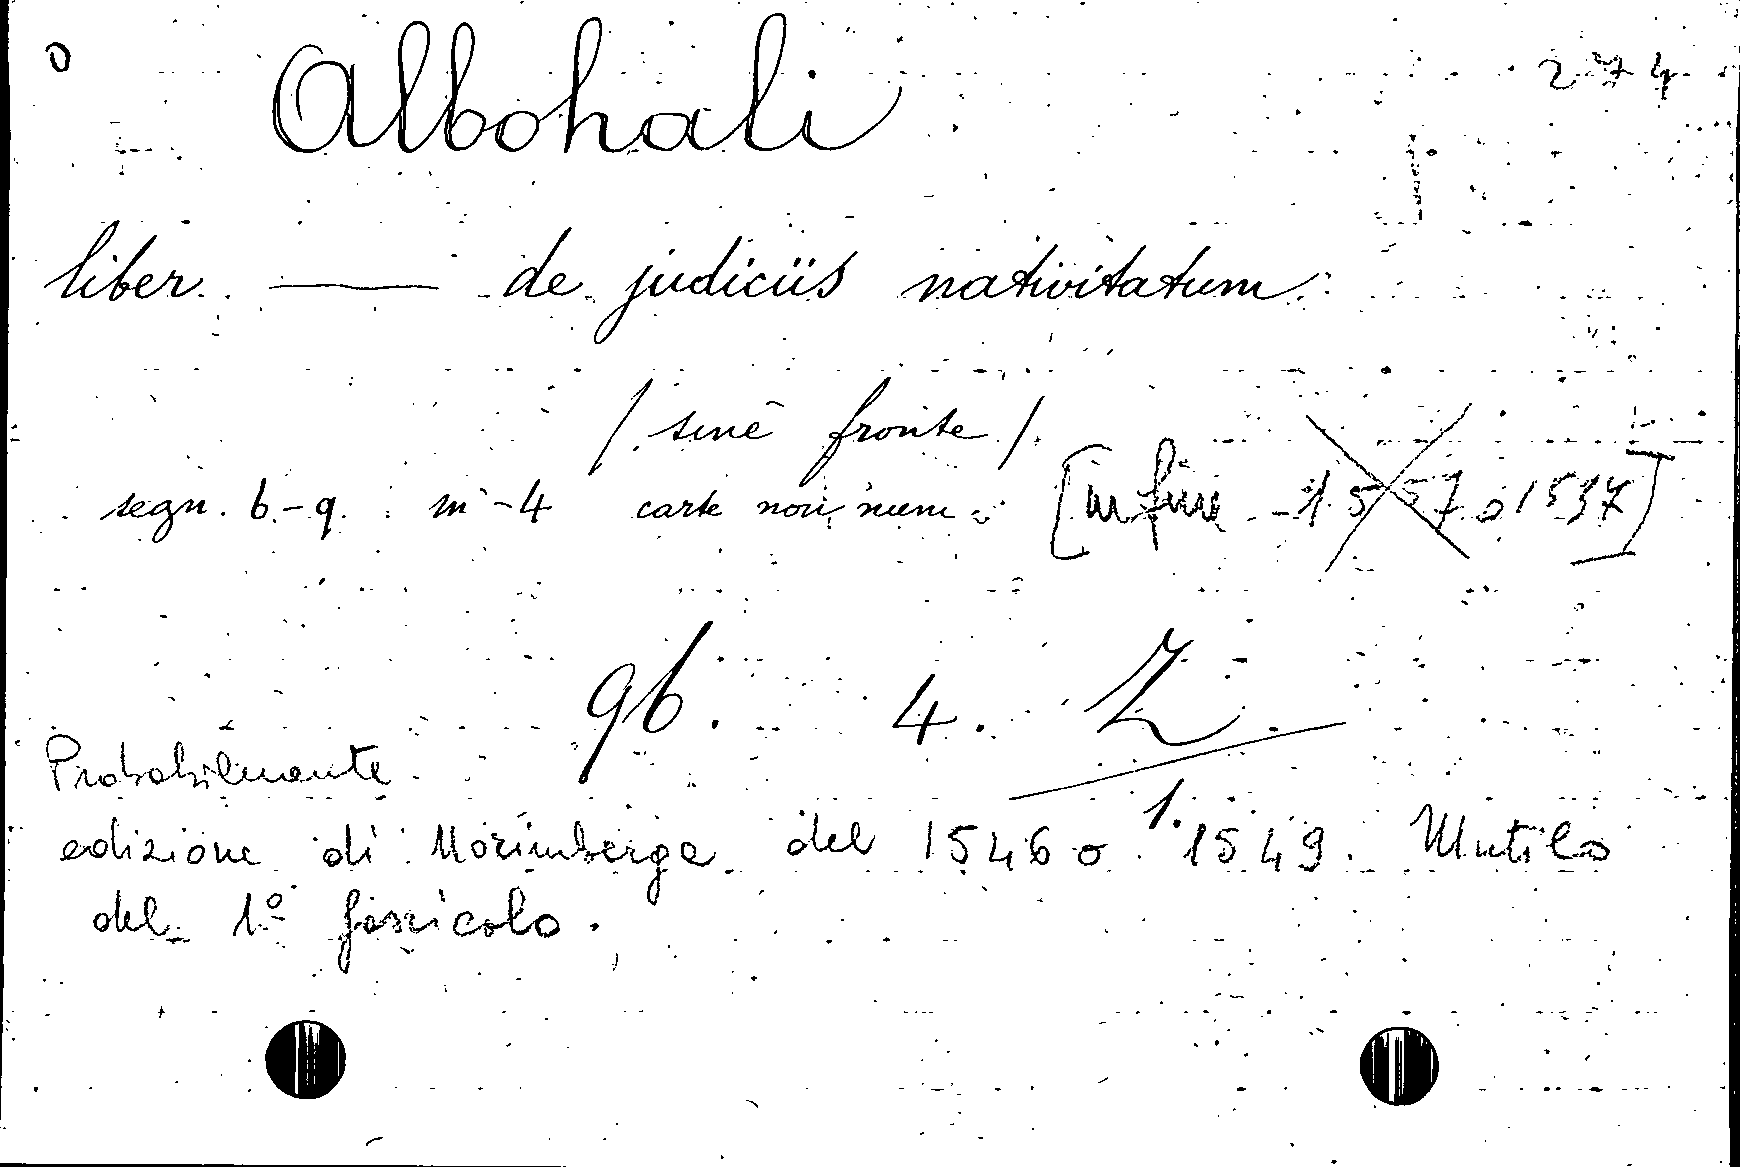 o
274
Albohali
liber —— de judiciis nativitatum
/ sine fronte /
segn. b-q in-4 carte non num. [in fine 1557 o 1537]
96. 4. Z
1.
Probabilmente
edizione di Norimberga del 1546 o 1549. Mutilo
del 1º fascicolo.